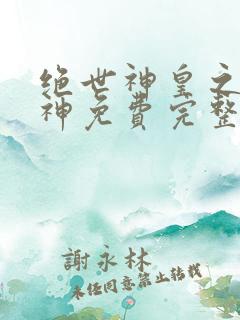 绝世神皇之
神免費完整
謝永林
未任同意禁止转载